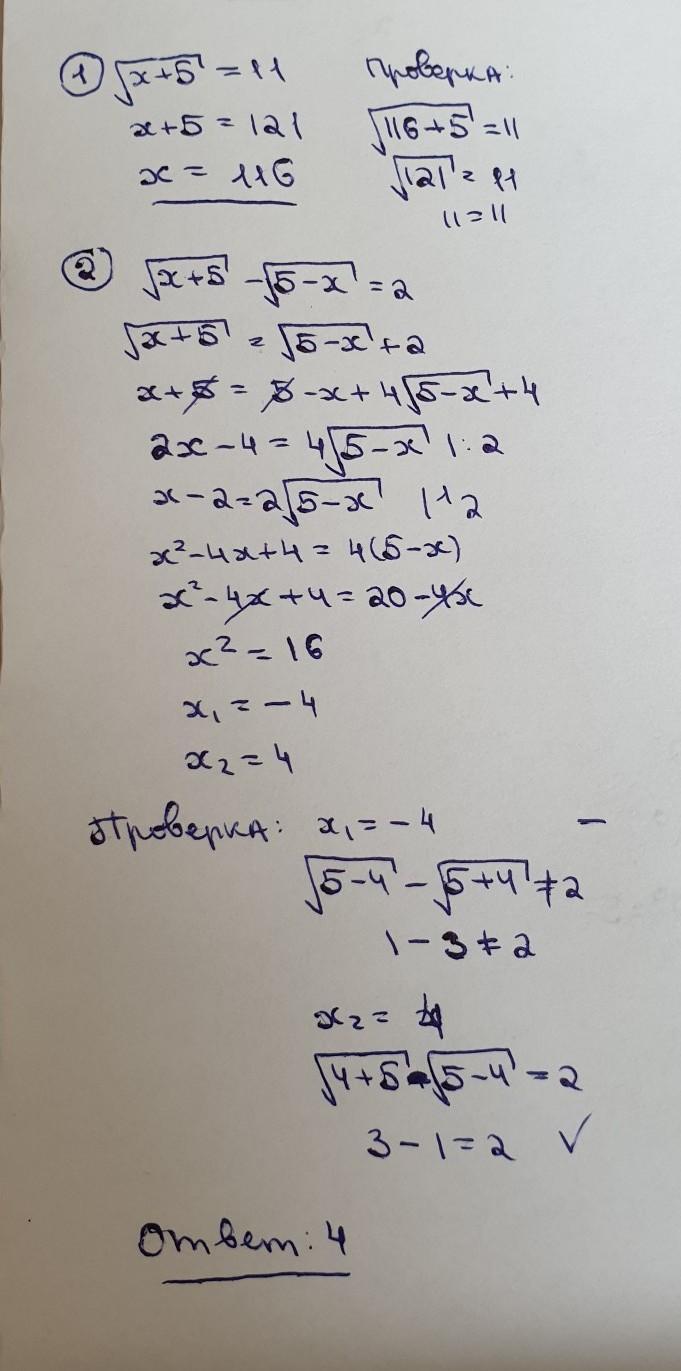 ① √x+5 = 11
x+5 = 121
x = 116
Проверка:
√116+5 = 11
√121 = 11
11 = 11
② √x+5 - √5-x = 2
√x+5 = √5-x + 2
x + 5 = 5 - x + 4√5-x + 4
2x - 4 = 4√5-x |: 2
x - 2 = 2√5-x | ↑ 2
x² - 4x + 4 = 4(5-x)
x² - 4x + 4 = 20 - 4x
x² = 16
x₁ = - 4
x₂ = 4
Проверка: x₁ = - 4 -
√5-4 - √5+4 ≠ 2
1 - 3 ≠ 2
x₂ = 4
√4+5 - √5-4 = 2
3 - 1 = 2 ✓
Ответ: 4